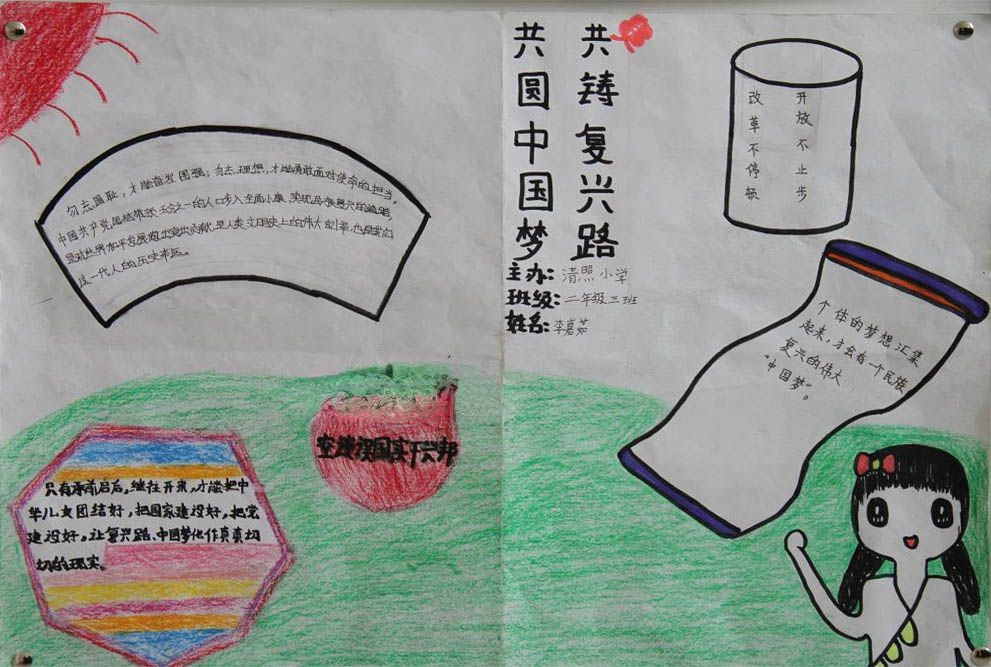 共铸复兴路
共圆中国梦
主办:清照小学
班级:二年级三班
姓名:李嘉茹
勿忘国耻,才能奋发图强;勿忘理想,才能勇敢面对使命的担当。
中国共产党团结带领五分之一的人口步入全面小康,实现民族复兴的道路,
是对世界和平发展做出突出贡献,是人类文明史上的伟大创举,也是我们
这一代人的历史
开放不止步
改革不停顿
个体的梦想汇集
起来,才会有一个民族
复兴的伟大
“中国梦”。
空谈误国实干兴邦
只有承前启后,继往开来,才能把中
华儿女团结好,把国家建设好,把党
建设好,让复兴路、中国梦化作真真切
切的现实。